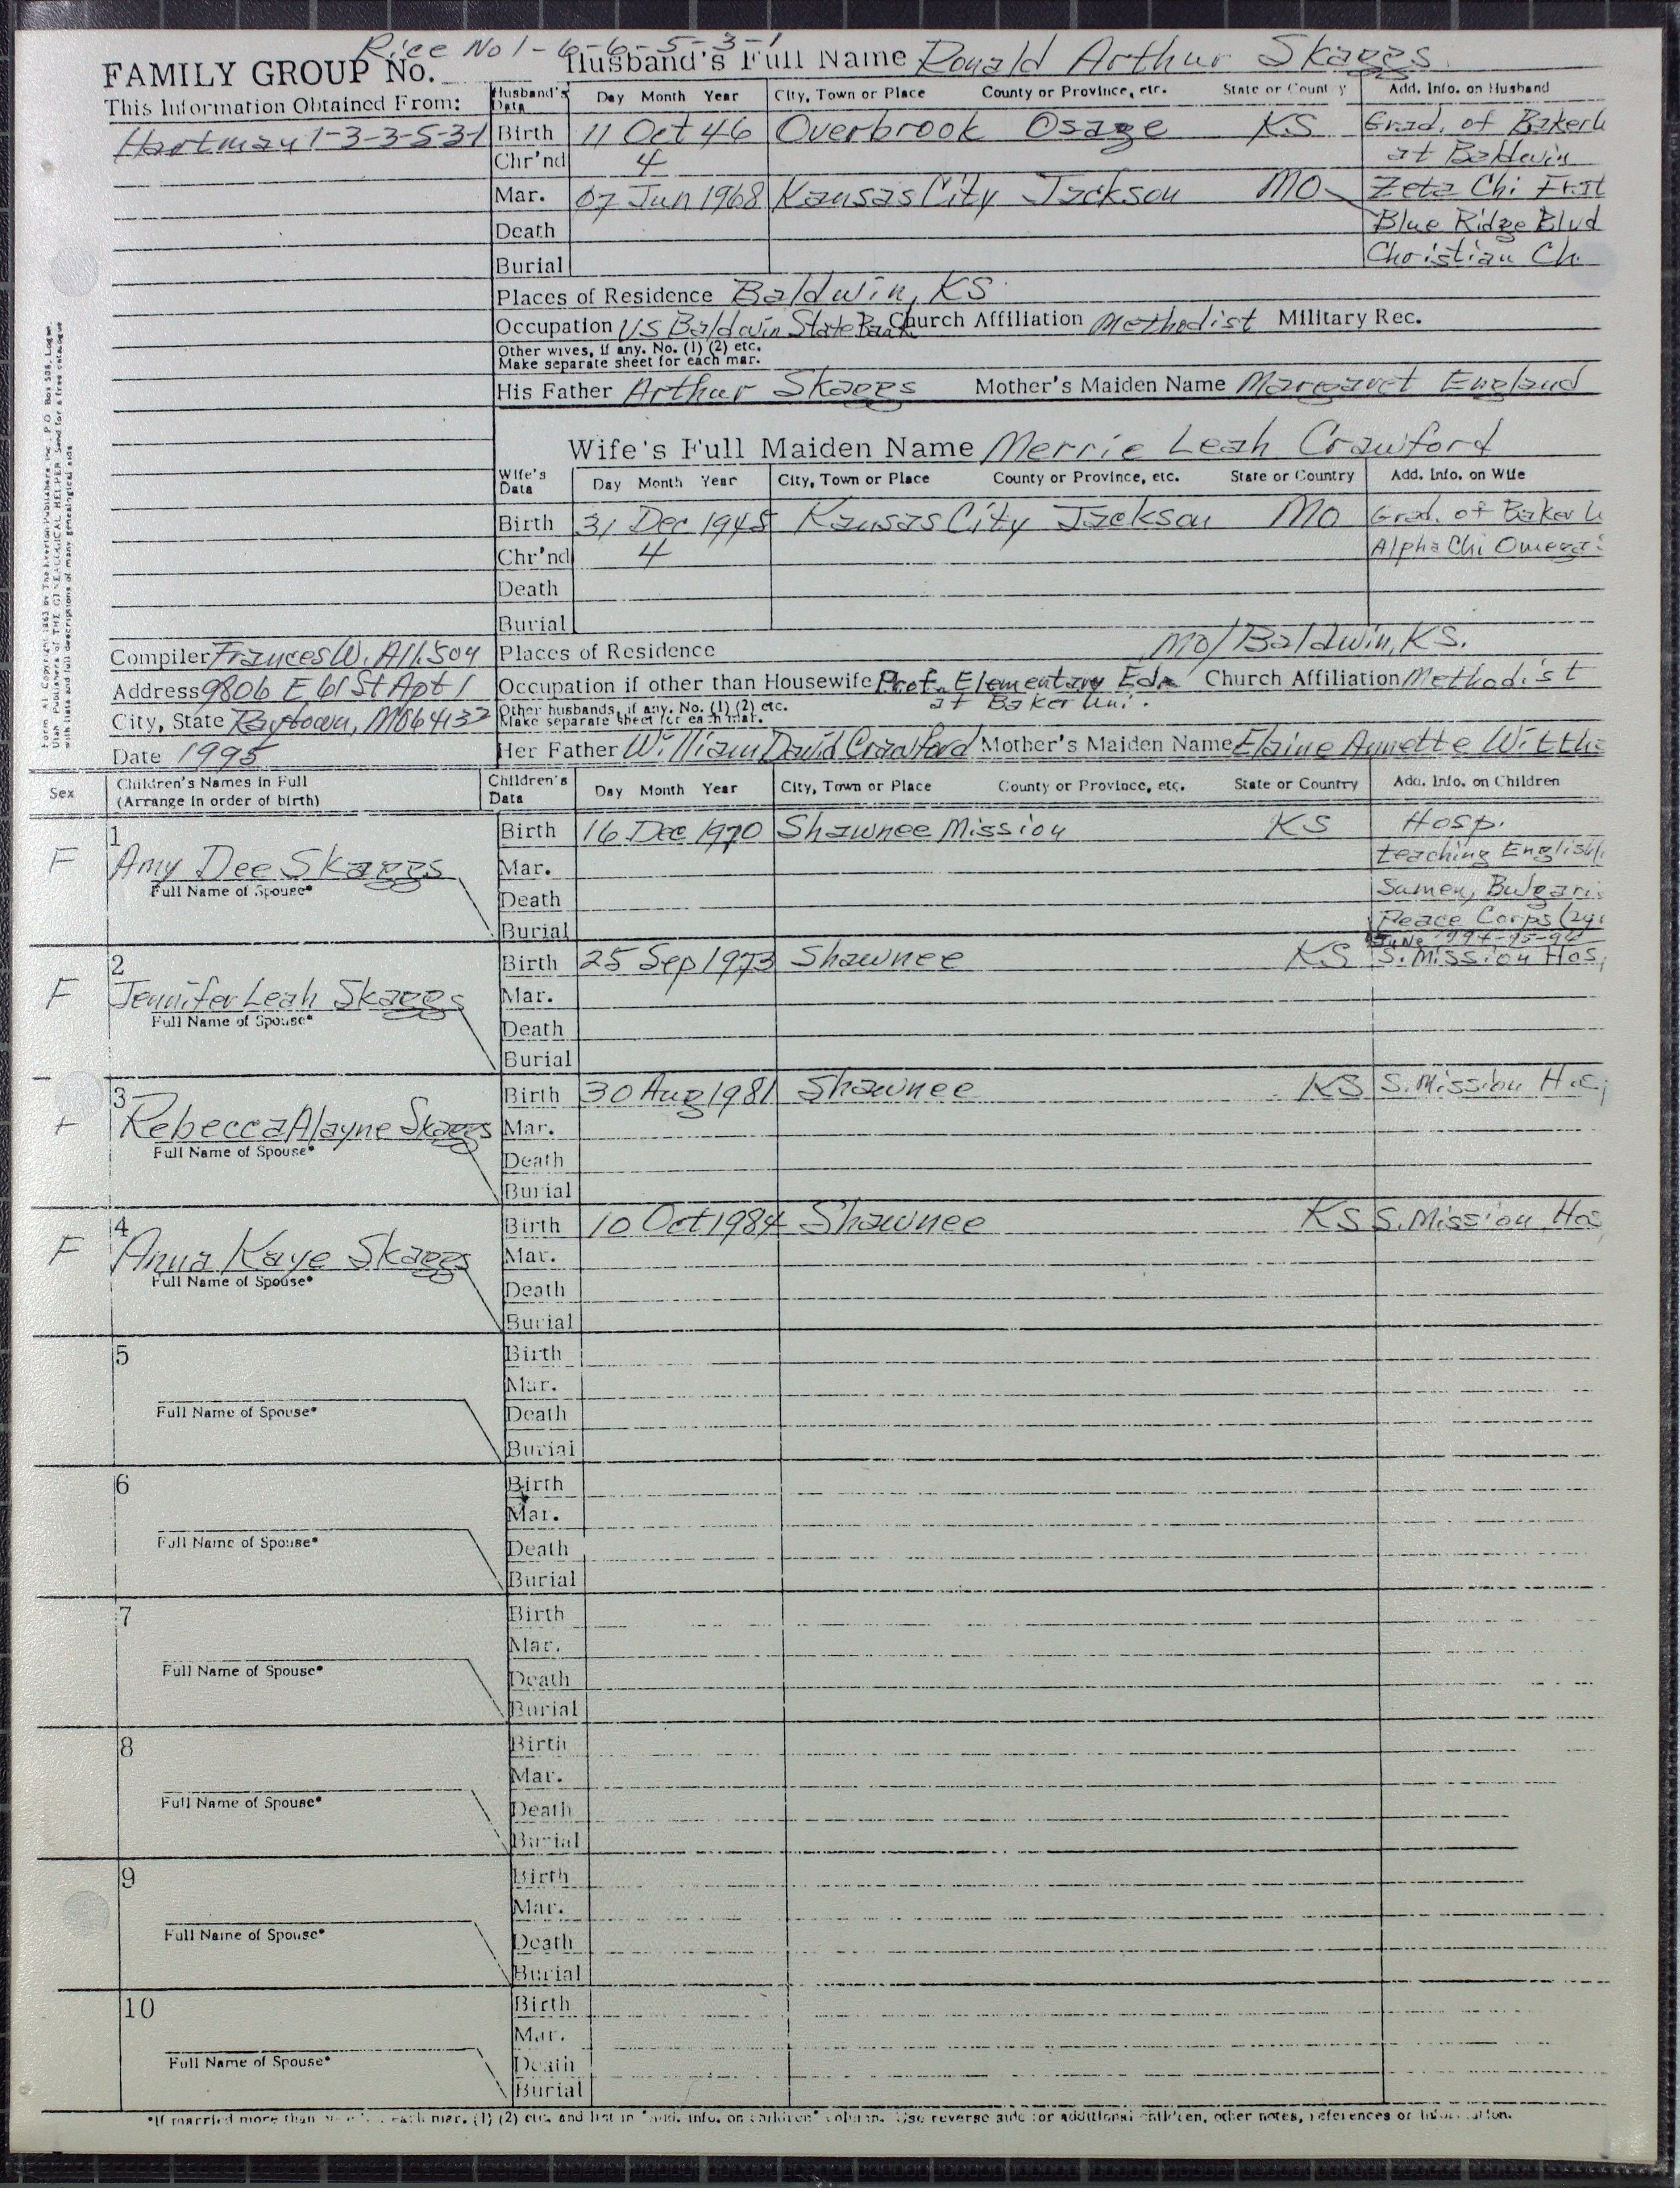 Rice No 1-6-6-5-3-1
FAMILY GROUP No.
Husband's Full Name Ronald Arthur Skaggs
This Information Obtained From:
Husband's Data Day Month Year City, Town or Place County or Province, etc. State or Country Add. Info. on Husband
Hartman 1-3-3-5-3-1
Birth 11 Oct 46 Overbrook Osage KS Grad. of Baker U
Chr'nd 4 at Baldwin
Mar. 07 Jun 1968 Kansas City Jackson MO Zeta Chi Frat
Death Blue Ridge Blvd
Burial Christian Ch.
Places of Residence Baldwin, KS
Occupation US Baldwin State Bank Church Affiliation Methodist Military Rec.
Other wives, if any. No. (1) (2) etc.
Make separate sheet for each mar.
His Father Arthur Skaggs Mother's Maiden Name Margaret England
Wife's Full Maiden Name Merrie Leah Crawford
Wife's Data Day Month Year City, Town or Place County or Province, etc. State or Country Add. Info. on Wife
Birth 31 Dec 1945 Kansas City Jackson MO Grad. of Baker U
Chr'nd 4 Alpha Chi Omega
Death
Burial
Compiler Frances W. Allison
Places of Residence Mo/Baldwin, KS.
Address 9806 E 61 St Apt 1
Occupation if other than Housewife Prof. Elementary Edn Church Affiliation Methodist
at Baker Uni.
City, State Raytown, MO 64133
Other husbands, if any. No. (1) (2) etc.
Make separate sheet for each mar.
Date 1995
Her Father William David Crawford Mother's Maiden Name Elaine Annette
Sex Children's Names in Full
(Arrange in order of birth)
Children's Data Day Month Year City, Town or Place County or Province, etc. State or Country Add. Info. on Children
1 Birth 16 Dec 1970 Shawnee Mission KS Hosp.
F Amy Dee Skaggs Mar. teaching English
Full Name of Spouse*
Death Sumen, Bulgari
Burial Peace Corps (2y
June
2 Birth 25 Sep 1973 Shawnee KS S. Mission Hos
F Jennifer Leah Skaggs Mar.
Full Name of Spouse*
Death
Burial
3 Birth 30 Aug 1981 Shawnee KS S. Mission Hos
Rebecca Alayne Skaggs Mar.
Full Name of Spouse*
Death
Burial
4 Birth 10 Oct 1984 Shawnee KS S. Mission Hos
F Anna Kaye Skaggs Mar.
Full Name of Spouse*
Death
Burial
5 Birth
Mar.
Full Name of Spouse*
Death
Burial
6 Birth
Mar.
Full Name of Spouse*
Death
Burial
7 Birth
Mar.
Full Name of Spouse*
Death
Burial
8 Birth
Mar.
Full Name of Spouse*
Death
Burial
9 Birth
Mar.
Full Name of Spouse*
Death
Burial
10 Birth
Mar.
Full Name of Spouse*
Death
Burial
*If married more than each mar. (1) (2) etc. and list in "add. info. on children" column. Use reverse side for additional children, other notes, references or information.
Form A1. Copyright 1963 by The Everton Publishers, Inc., P.O. Box 508, Logan,
Utah. Publishers of THE GENEALOGICAL HELPER. Send for a free catalogue
with lists and full descriptions of many genealogical aids.